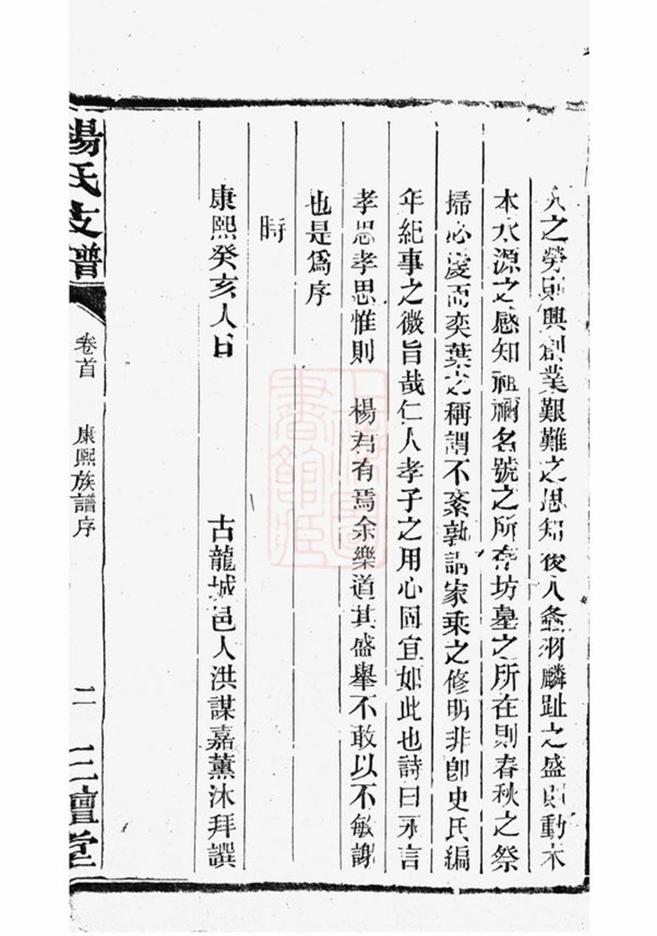 人之勞則興創業艱難之思知後人螽羽麟趾之盛則動木
本水源之感知祖禰名號之所存坊墓之所在則春秋之祭
掃必虔而奕葉之稱謂不紊孰謂家乘之修明非即史氏編
年紀事之微旨哉仁人孝子之用心固宜如此也詩曰永言
孝思孝思惟則 楊君有焉余樂道其盛舉不敢以不敏謝
也是爲序
時
康熙癸亥人日 古龍城邑人洪謀嘉薰沐拜譔
楊氏支譜 卷首 康熙族譜序 二 三鱣堂